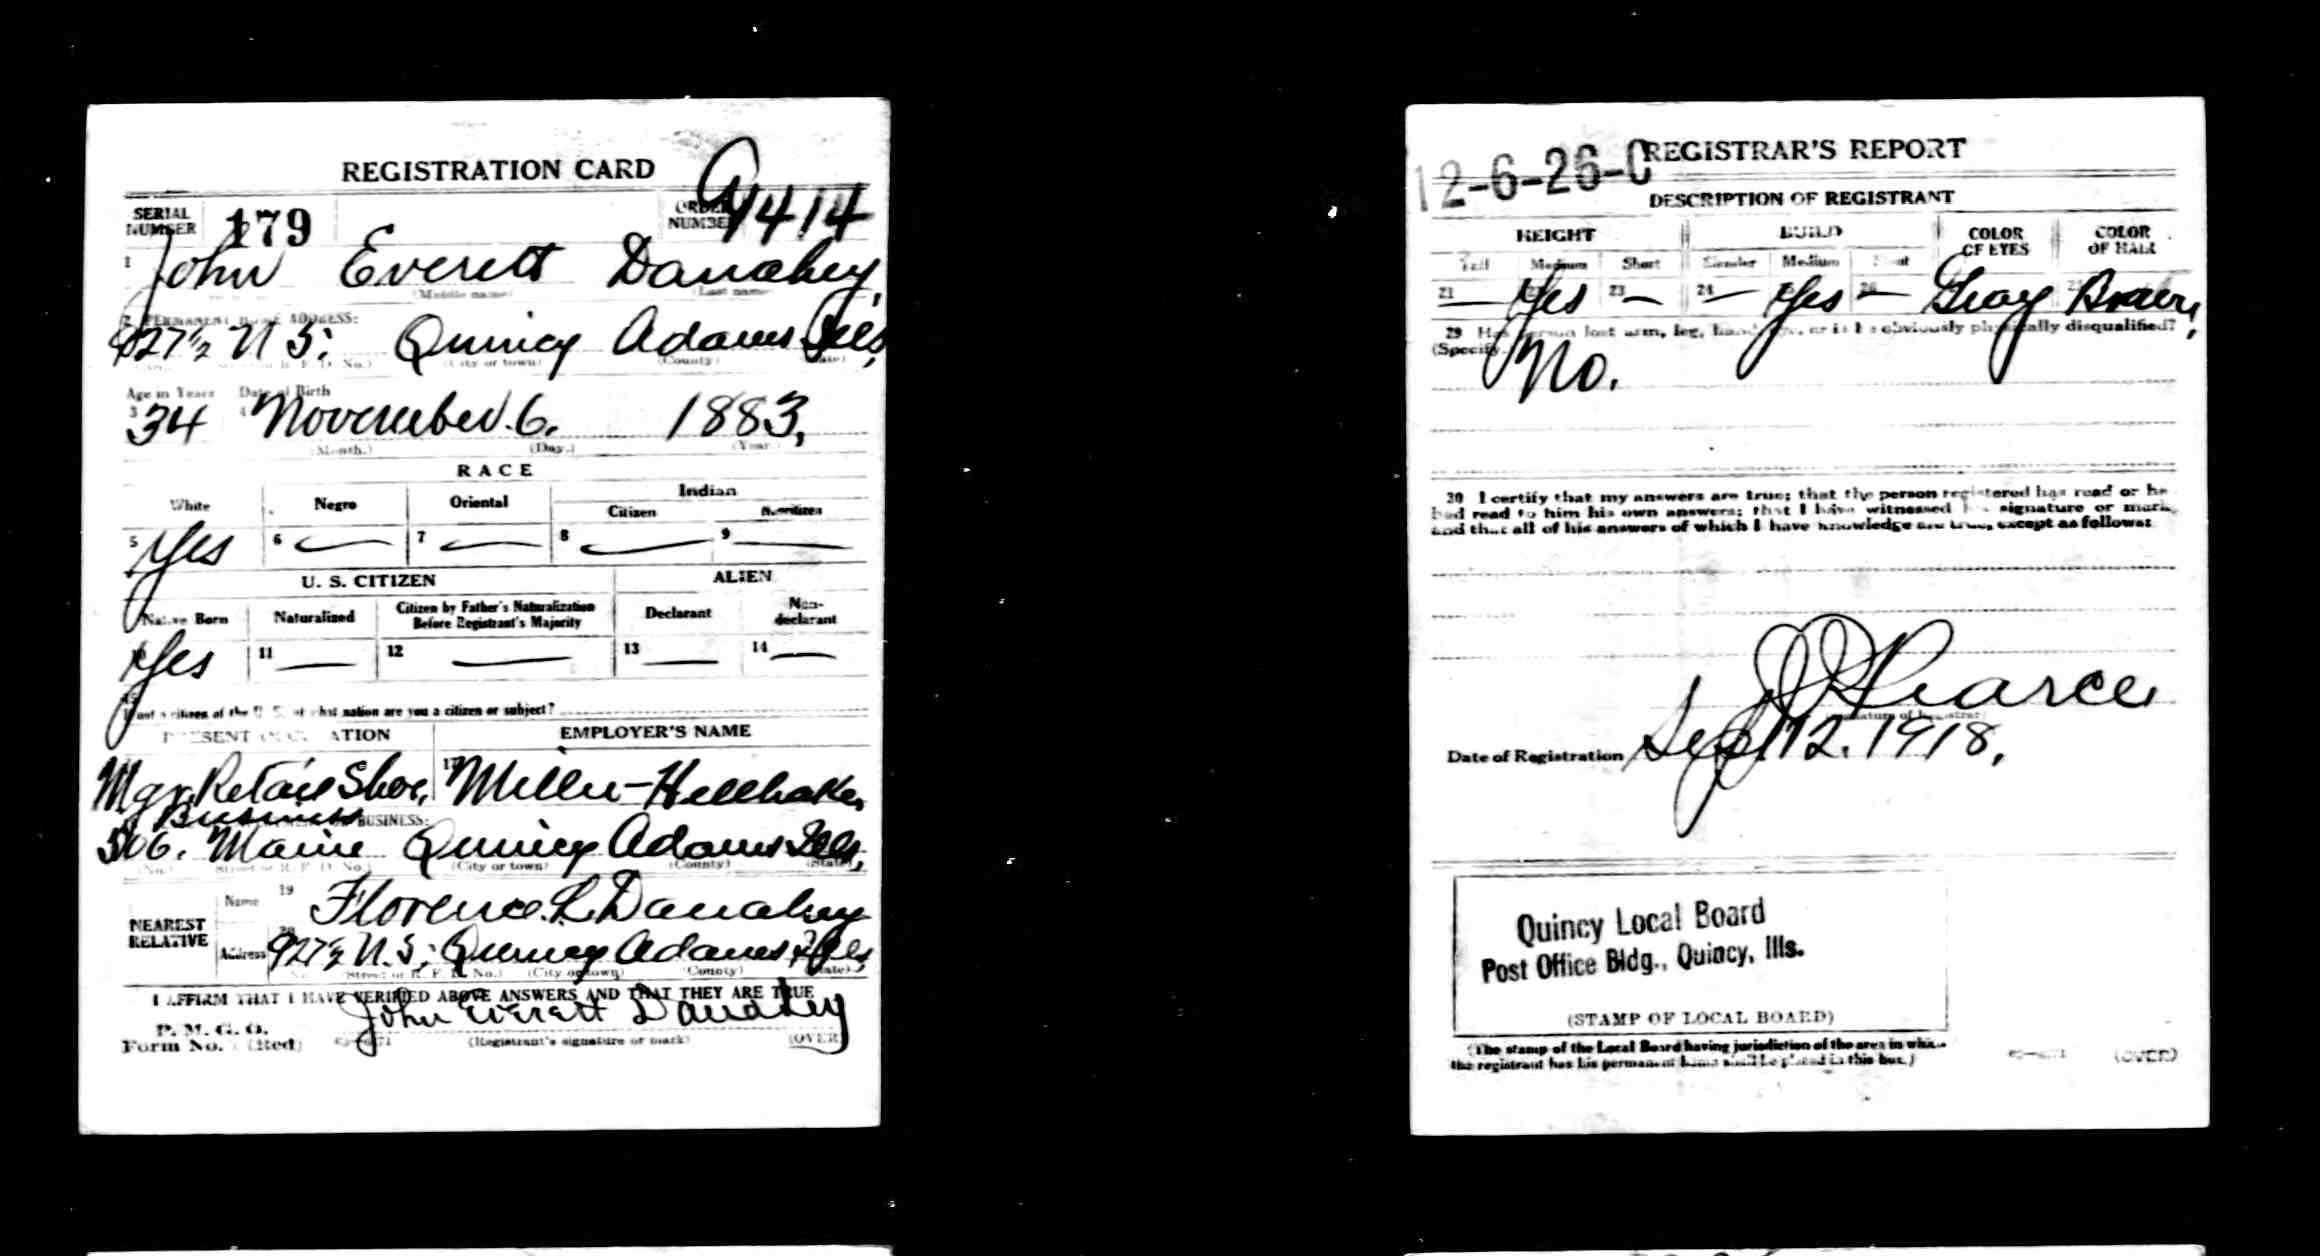 REGISTRATION CARD
SERIAL NUMBER 179 ORDER NUMBER A1414
1 John Everett Danahey
(Middle name) (Last name)
2 PERMANENT HOME ADDRESS:
927½ N 5; Quincy Adams Ills,
(No.) (City or town) (County) (State)
Age in Years Date of Birth
3 34 4 November. 6. 1883,
(Month.) (Day.) (Year.)
RACE
White Negro Oriental Indian
Citizen Noncitizen
5 Yes 6 — 7 — 8 — 9 —
U. S. CITIZEN ALIEN
Native Born Naturalized Citizen by Father's Naturalization Before Registrant's Majority Declarant Non-declarant
10 Yes 11 — 12 — 13 — 14 —
15
If not a citizen of the U. S., of what nation are you a citizen or subject?
PRESENT OCCUPATION EMPLOYER'S NAME
Mgr. Retail Shoe, Business 17 Miller-
BUSINESS:
506. Maine Quincy Adams Ills,
(No.) (Street or R. F. D. No.) (City or town) (County) (State)
NEAREST RELATIVE
Name 19 Florence. L. Danahey
Address 20 927½ N. 5; Quincy Adams Ills,
(No.) (Street or R. F. D. No.) (City or town) (County) (State)
I AFFIRM THAT I HAVE VERIFIED ABOVE ANSWERS AND THAT THEY ARE TRUE
John Everett Danahey
P. M. G. O.
Form No. (Red) (Registrant's signature or mark) (OVER)
12-6-26-C REGISTRAR'S REPORT
DESCRIPTION OF REGISTRANT
HEIGHT BUILD COLOR OF EYES COLOR OF HAIR
Tall Medium Short Slender Medium Stout
21 — Yes 23 — 24 — Yes 26 — Gray Brown,
29 Has person lost arm, leg, hand, eye, or is he obviously physically disqualified?
(Specify.) No.
30 I certify that my answers are true; that the person registered has read or has
had read to him his own answers; that I have witnessed his signature or mark,
and that all of his answers of which I have knowledge are true, except as follows:
J J Pearce
(Signature of Registrar)
Date of Registration Sept 12. 1918,
Quincy Local Board
Post Office Bldg., Quincy, Ills.
(STAMP OF LOCAL BOARD)
(The stamp of the Local Board having jurisdiction of the area in which
the registrant has his permanent home shall be placed in this box.)
(OVER)